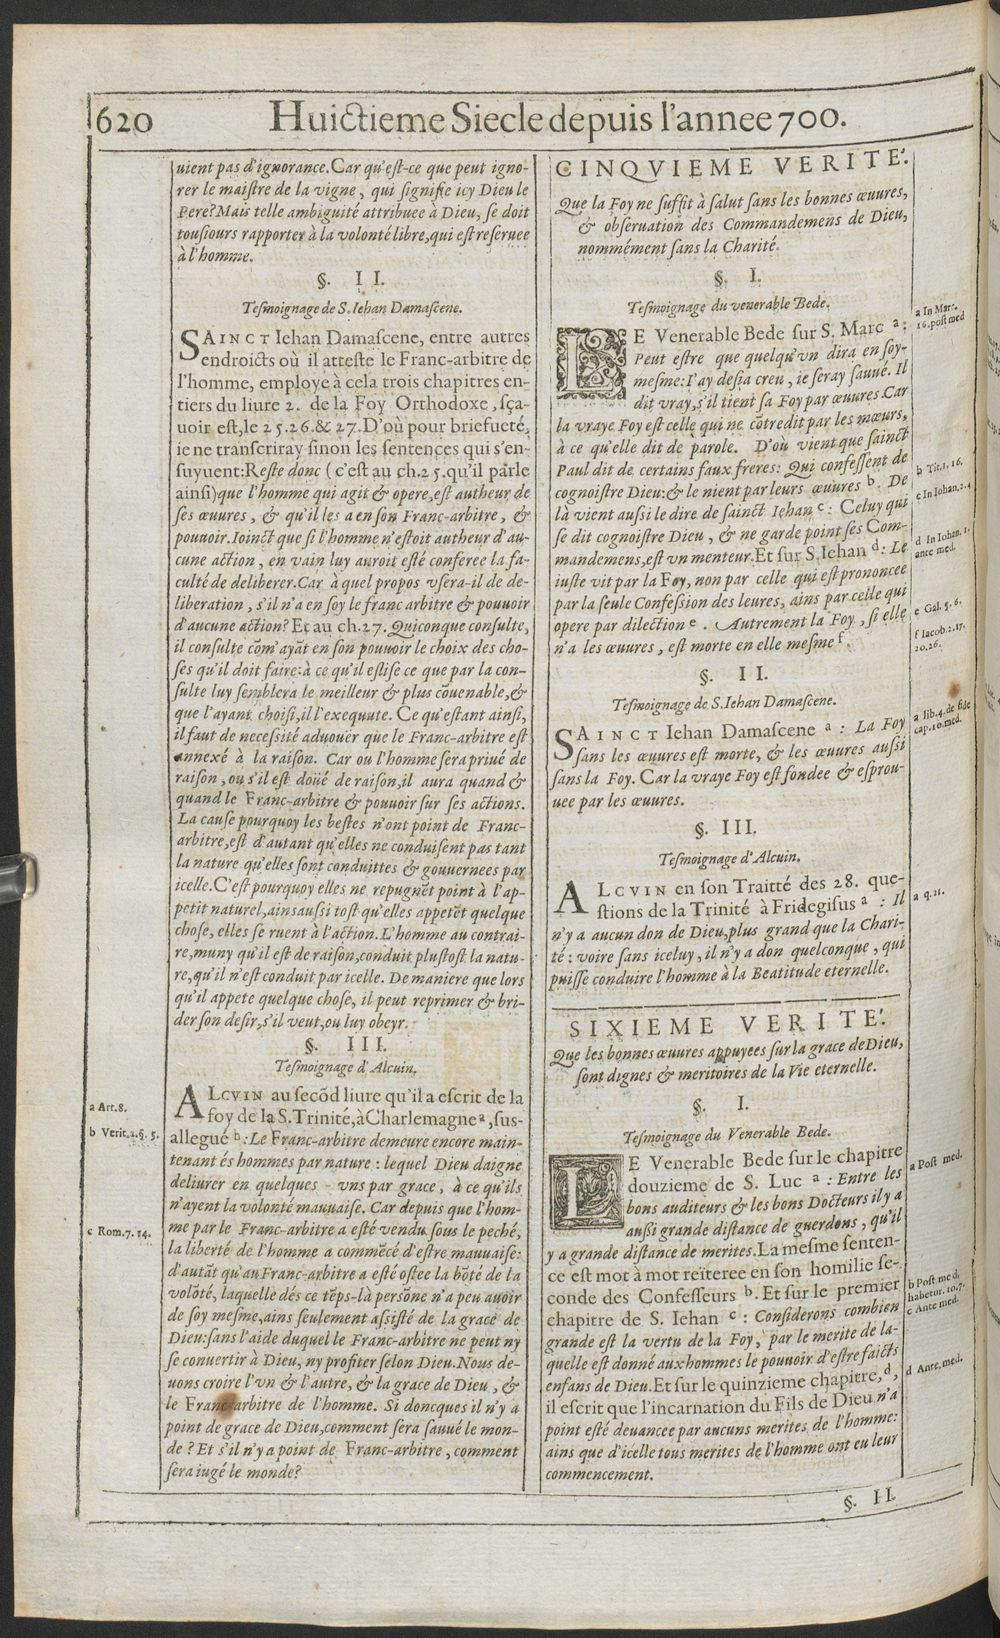 620
Huictieme Siecle depuis l'annee 700.
uient pas d'ignorance. Car qu'est-ce que peut igno-
rer le maistre de la vigne, qui signifie icy Dieu le
Pere? Mais telle ambiguité attribuee à Dieu, se doit
tousiours rapporter à la volonté libre, qui est reseruee
à l'homme.
§. II.
Tesmoignage de S. Iehan Damascene.
SAINCT Iehan Damascene, entre autres
endroicts où il atteste le Franc-arbitre de
l'homme, employe à cela trois chapitres en-
tiers du liure 2. de la Foy Orthodoxe, sça-
uoir est, le 25.26.& 27. D'où pour briefueté,
ie ne transcriray sinon les sentences qui s'en-
suyuent: Reste donc (c'est au ch.25. qu'il parle
ainsi) que l'homme qui agit & opere, est autheur de
ses œuures, & qu'il les a en son Franc-arbitre, &
pouuoir. Ioinct que si l'homme n'estoit autheur d'au-
cune action, en vain luy auroit esté conferee la fa-
culté de deliberer. Car à quel propos vsera-il de de-
liberation, s'il n'a en soy le franc arbitre & pouuoir
d'aucune action? Et au ch.27. Quiconque consulte,
il consulte cõm' ayãt en son pouuoir le choix des cho-
ses qu'il doit faire: à ce qu'il eslise ce que par la con-
sulte luy semblera le meilleur & plus cõuenable, &
que l'ayant choisi, il l'exequute. Ce qu'estant ainsi,
il faut de necessité aduoüer que le Franc-arbitre est
annexé à la raison. Car ou l'homme sera priué de
raison, ou s'il est doüé de raison, il aura quand &
quand le Franc-arbitre & pouuoir sur ses actions.
La cause pourquoy les bestes n'ont point de Franc-
arbitre, est d'autant qu'elles ne conduisent pas tant
la nature qu'elles sont conduittes & gouuernees par
icelle. C'est pourquoy elles ne repugnẽt point à l'ap-
petit naturel, ains aussi tost qu'elles appetẽt quelque
chose, elles se ruent à l'action. L'homme au contrai-
re, muny qu'il est de raison, conduit plustost la natu-
re, qu'il n'est conduit par icelle. De maniere que lors
qu'il appete quelque chose, il peut reprimer & bri-
der son desir, s'il veut, ou luy obeyr.
§. III.
Tesmoignage d'Alcuin.
ALCVIN au secõd liure qu'il a escrit de la
foy de la S. Trinité, à Charlemagne a, sus-
allegué b: Le Franc-arbitre demeure encore main-
tenant és hommes par nature: lequel Dieu daigne
deliurer en quelques-vns par grace, à ce qu'ils
n'ayent la volonté mauuaise. Car depuis que l'hom-
me par le Franc-arbitre a esté vendu sous le peché,
la liberté de l'homme a commẽcé d'estre mauuaise:
d'autãt qu'au Franc-arbitre a esté ostee la bõté de la
volõté, laquelle dés ce tẽps-là persõne n'a peu auoir
de soy mesme, ains seulement assisté de la grace de
Dieu: sans l'aide duquel le Franc-arbitre ne peut ny
se conuertir à Dieu, ny profiter selon Dieu. Nous de-
uons croire l'vn & l'autre, & la grace de Dieu, &
le Franc-arbitre de l'homme. Si doncques il n'y a
point de grace de Dieu, comment sera sauué le mon-
de? Et s'il n'y a point de Franc-arbitre, comment
sera iugé le monde?
a Art.8.
b Verit.2.§. 5.
c Rom.7.14.
CINQVIEME VERITE'.
Que la Foy ne suffit à salut sans les bonnes œuures,
& obseruation des Commandemens de Dieu,
nommément sans la Charité.
§. I.
Tesmoignage du venerable Bede.
LE Venerable Bede sur S. Marc a:
Peut estre que quelqu'vn dira en soy-
mesme: I'ay desia creu, ie seray sauué. Il
dit vray, s'il tient sa Foy par œuures. Car
la vraye Foy est celle qui ne cõtredit par les mœurs,
à ce qu'elle dit de parole. D'où vient que sainct
Paul dit de certains faux freres: Qui confessent de
cognoistre Dieu: & le nient par leurs œuures b. De
là vient aussi le dire de sainct Iehan c: Celuy qui
se dit cognoistre Dieu, & ne garde point ses Com-
mandemens, est vn menteur. Et sur S. Iehan d: Le
iuste vit par la Foy, non par celle qui est prononcee
par la seule Confession des leures, ains par celle qui
opere par dilection e. Autrement la Foy, si elle
n'a les œuures, est morte en elle mesme f.
§. II.
Tesmoignage de S. Iehan Damascene.
SAINCT Iehan Damascene a: La Foy
sans les œuures est morte, & les œuures aussi
sans la Foy. Car la vraye Foy est fondee & esprou-
uee par les œuures.
§. III.
Tesmoignage d'Alcuin.
ALCVIN en son Traitté des 28. que-
stions de la Trinité à Fridegisus a: Il
n'y a aucun don de Dieu, plus grand que la Chari-
té: voire sans iceluy, il n'y a don quelconque, qui
puisse conduire l'homme à la Beatitude eternelle.
SIXIEME VERITE'.
Que les bonnes œuures appuyees sur la grace de Dieu,
sont dignes & meritoires de la Vie eternelle.
§. I.
Tesmoignage du Venerable Bede.
LE Venerable Bede sur le chapitre
douzieme de S. Luc a: Entre les
bons auditeurs & les bons Docteurs il y a
aussi grande distance de guerdons, qu'il
y a grande distance de merites. La mesme senten-
ce est mot à mot reïteree en son homilie se-
conde des Confesseurs b. Et sur le premier
chapitre de S. Iehan c: Considerons combien
grande est la vertu de la Foy, par le merite de la-
quelle est donné aux hommes le pouuoir d'estre faicts
enfans de Dieu. Et sur le quinzieme chapitre, d,
il escrit que l'incarnation du Fils de Dieu n'a
point esté deuancee par aucuns merites de l'homme:
ains que d'icelle tous merites de l'homme ont eu leur
commencement.
a In Marc.
16. post med
b Tit.1. 16.
c In Iohan.2.4
d In Iohan. 1.
ante med.
e Gal. 5. 6.
f Iacob.2.17.
20.26.
a lib.4. de fide
cap.10. med.
a q. 21.
a Post med.
b Post med,
habetur. 10.7.
c Ante med.
d Ante, med.
§. II.